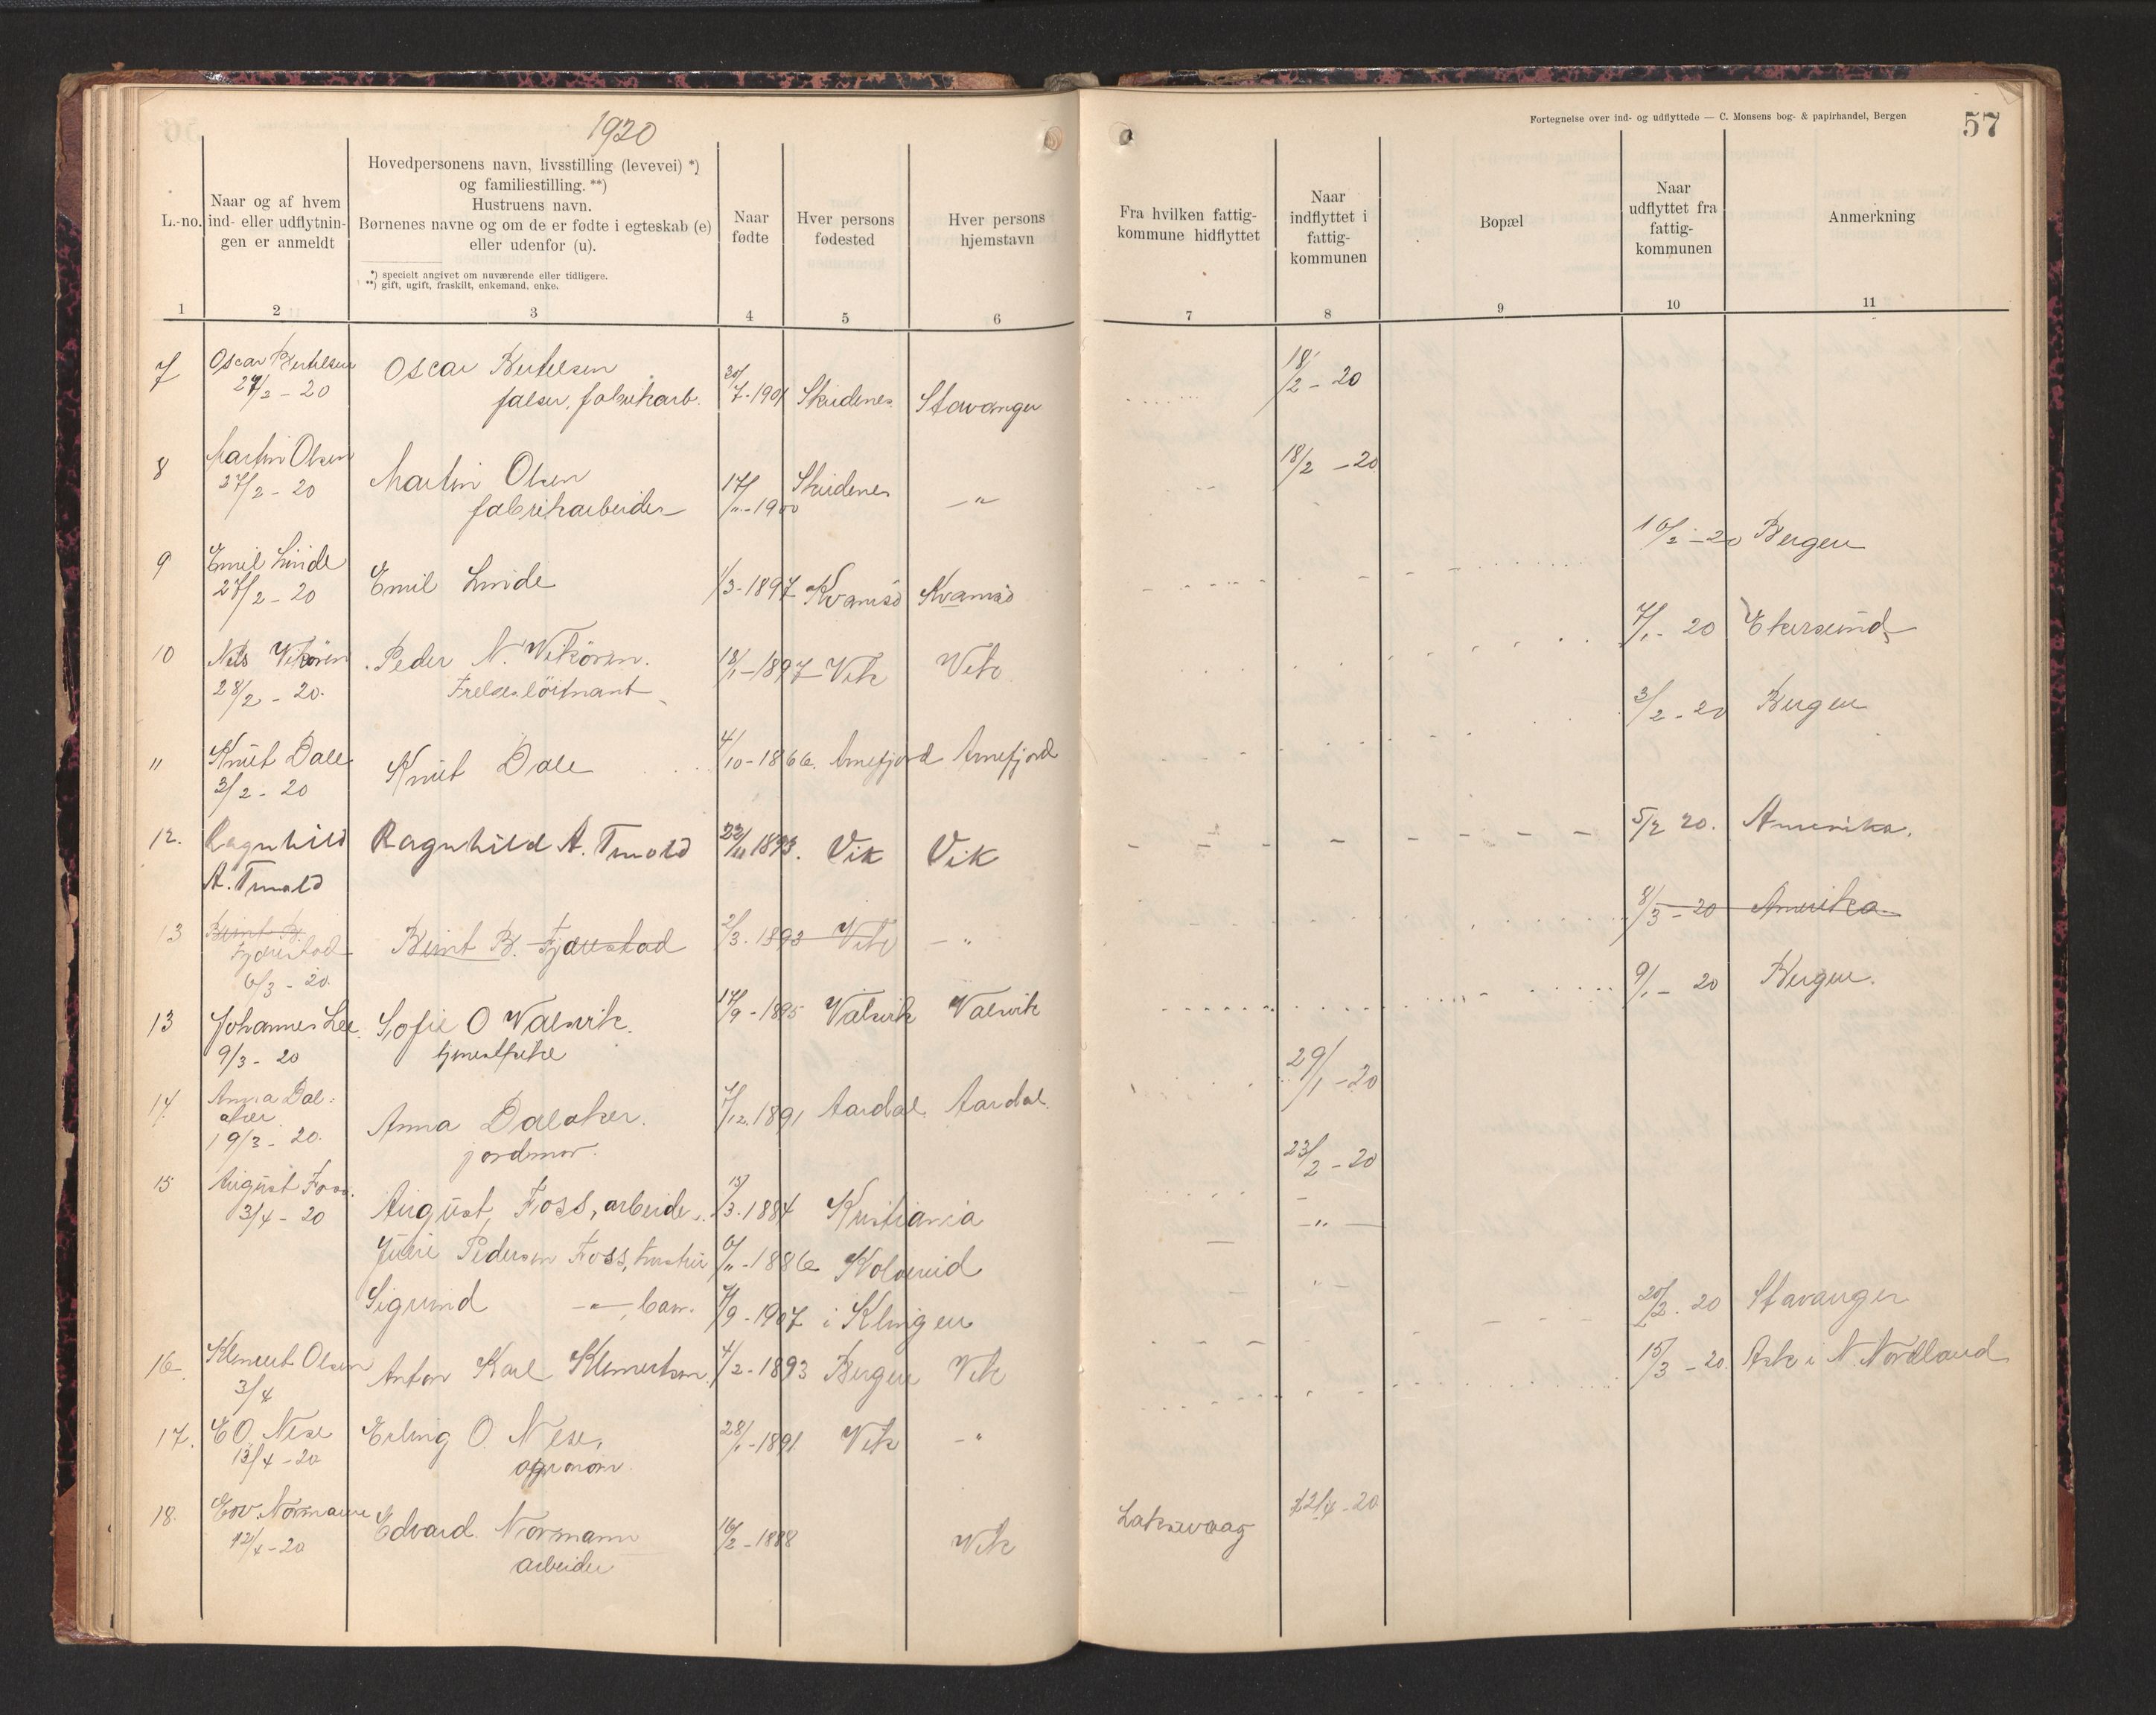 1920
Fortegnelse over ind- og udflyttede — C. Monsens bog- & papirhandel, Bergen
57
L.-no.
Naar og af hvem
ind- eller udflytnin-
gen er anmeldt
Hovedpersonens navn, livsstilling (levevei) *)
og familiestilling. **)
Hustruens navn.
Børnenes navne og om de er fødte i egteskab (e)
eller udenfor (u).
*) specielt angivet om nuværende eller tidligere.
**) gift, ugift, fraskilt, enkemand, enke.
Naar
fødte
Hver persons
fødested
Hver persons
hjemstavn
Fra hvilken fattig-
kommune hidflyttet
Naar
indflyttet i
fattig-
kommunen
Bopæl
Naar
udflyttet fra
fattig-
kommunen
Anmerkning
1 2 3 4 5 6 7 8 9 10 11
7 Oscar Bertelsen Oscar Bertelsen 18/2 - 20
27/2 - 20 fabrikarb. 7-1901 Skudenes Stavanger
8 Martin Olsen Martin Olsen 17/ Skudenes 18/2 - 20
27/2 - 20 fabrikarbeider 11-1900 — " 
9 Emil Linde Emil Linde 1/3-1897 Kvamsö Kvamsö 16/2 - 20 Bergen
27/2 - 20
10 Nils Vikören Peder N. Vikören. 18/1-1897 Vik Vik 7/1 - 20 Ekersund
28/2 - 20. Frelseslöitnant
" Knut Dale Knut Dale 4/10-1866. Arnefjord Arnefjord 3/2 - 20 Bergen
3/2 - 20
12. Ragnhild Ragnhild A. Tmold 22/11 1893. Vik Vik 5/2 20. Amerika.
A. Tmold
13 Bernt B. Bernt B. Fjærestad 2/3. 1893 Vik — " 8/3 - 20 Amerika
Fjærestad
6/3 - 20.
13 Johannes Lee Sofie O Valsvik. 17/9 - 1895 Valsvik Valsvik 9/1 - 20 Bergen.
9/3 - 20
14. Anna Dal- Anna Dalaker. 7/12. 1891 Aardal. Aardal. 29/1 - 20
aker jordmor.
19/3 - 20.
15 August Foss. August Foss, arbeider. 15/3. 1884 Kristiania 23/2 - 20
3/4 - 20
Pedersen Foss, hustru 6/11 - 1886 Kolvereid — " —
Sigrund — " — barn. 7/9 - 1907 i Klingen " -
16. Klemert Olsen Anton Karl Klemertsen. 4/2 - 1893 Bergen Vik 20/2. 20 Stavanger
3/4
17. E O. Nese Erling O. Nese, 28/1 - 1891 Vik — " 15/3 - 20. Ask i N. Nordland
13/4 - 20 agronom.
18. Edv. Normann Edvard Normann 16/2 - 1888 Vik Laksevaag 12/4 - 20
12/4 - 20 arbeider